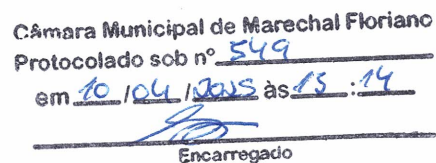 Câmara Municipal de Marechal Floriano
Protocolado sob nº 549
em 10 / 04 / às 15 : 14
Encarregado